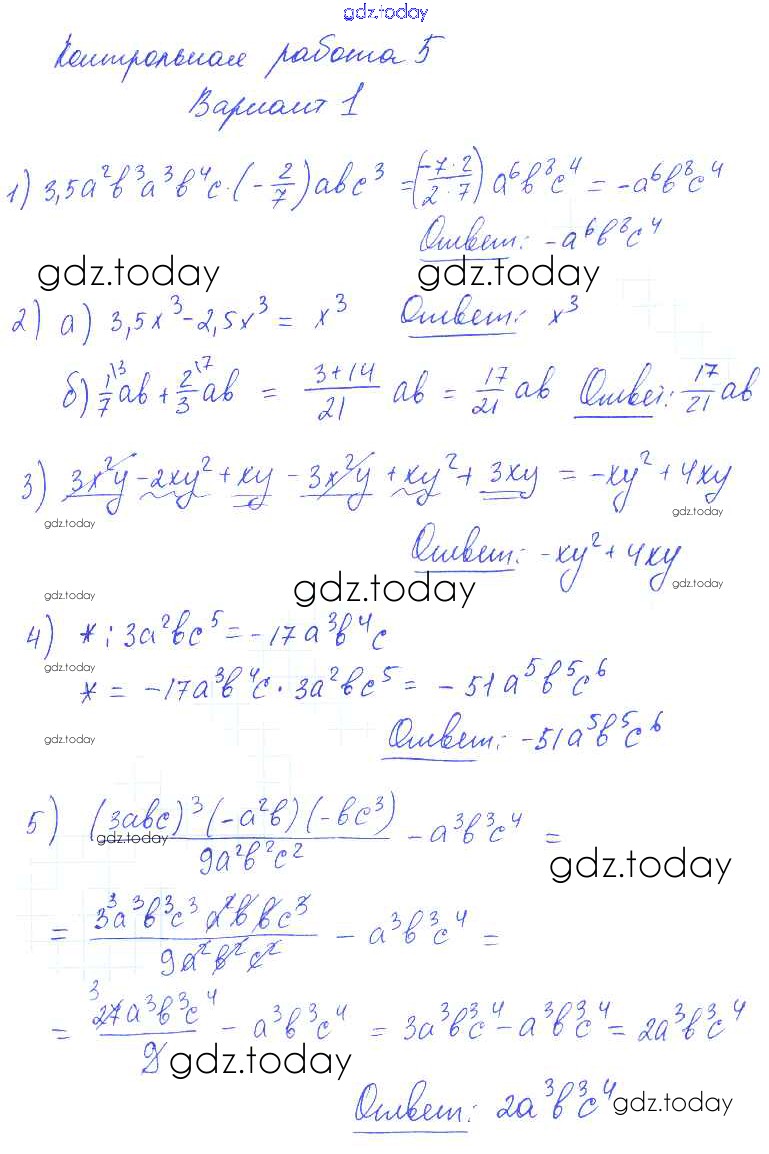 gdz.today
Контрольная работа 5
Вариант 1
1) 3,5a²b³a³b⁴c·(-2/7)abc³ = (-7·2/2·7) a⁶b⁸c⁴ = -a⁶b⁸c⁴
Ответ: -a⁶b⁸c⁴
gdz.today gdz.today
2) а) 3,5x³-2,5x³ = x³ Ответ: x³
б) 1\3/7 ab + 2\7/3 ab = 3+14/21 ab = 17/21 ab Ответ: 17/21 ab
3) 3x²y - 2xy² + xy - 3x²y + xy² + 3xy = -xy² + 4xy
gdz.today gdz.today
Ответ: -xy² + 4xy
gdz.today gdz.today gdz.today
4) * : 3a²bc⁵ = -17a³b⁴c
gdz.today
* = -17a³b⁴c · 3a²bc⁵ = -51a⁵b⁵c⁶
gdz.today Ответ: -51a⁵b⁵c⁶
5) (3abc)³(-a²b)(-bc³)/9a²b²c² - a³b³c⁴ =
gdz.today gdz.today
= 3³a³b³c³a²bbc³/9a²b²c² - a³b³c⁴ =
= 3 27a³b³c⁴/9 - a³b³c⁴ = 3a³b³c⁴ - a³b³c⁴ = 2a³b³c⁴
gdz.today
Ответ: 2a³b³c⁴ gdz.today